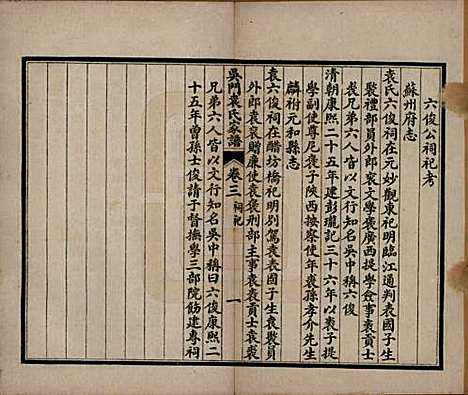 六俊公祠祀考
蘇州府志
袁氏六俊祠在元妙觀東祀明臨江通判袁國子生
裝禮部員外郎袠文學褒廣西提學僉事袁
袠兄弟六人皆以文行知名吳中稱六俊
清朝康熙二十五年建彭瓏記三十六年以袠子提
學副使尊尼褒子陝西按察使年袠孫孝介先生
麟祔元和縣志
袁六俊祠在醋坊橋祀明別駕袁袁國子生袁員
外郎袁袠贈康使袁褒刑部主事袁袁貢士袁裘
兄弟六人皆以文行知名吳中稱曰六俊康熙二
十五年曾孫士俊請于督撫學三部院飭建專祠
吳門袁氏家譜
卷三
祠祀
一